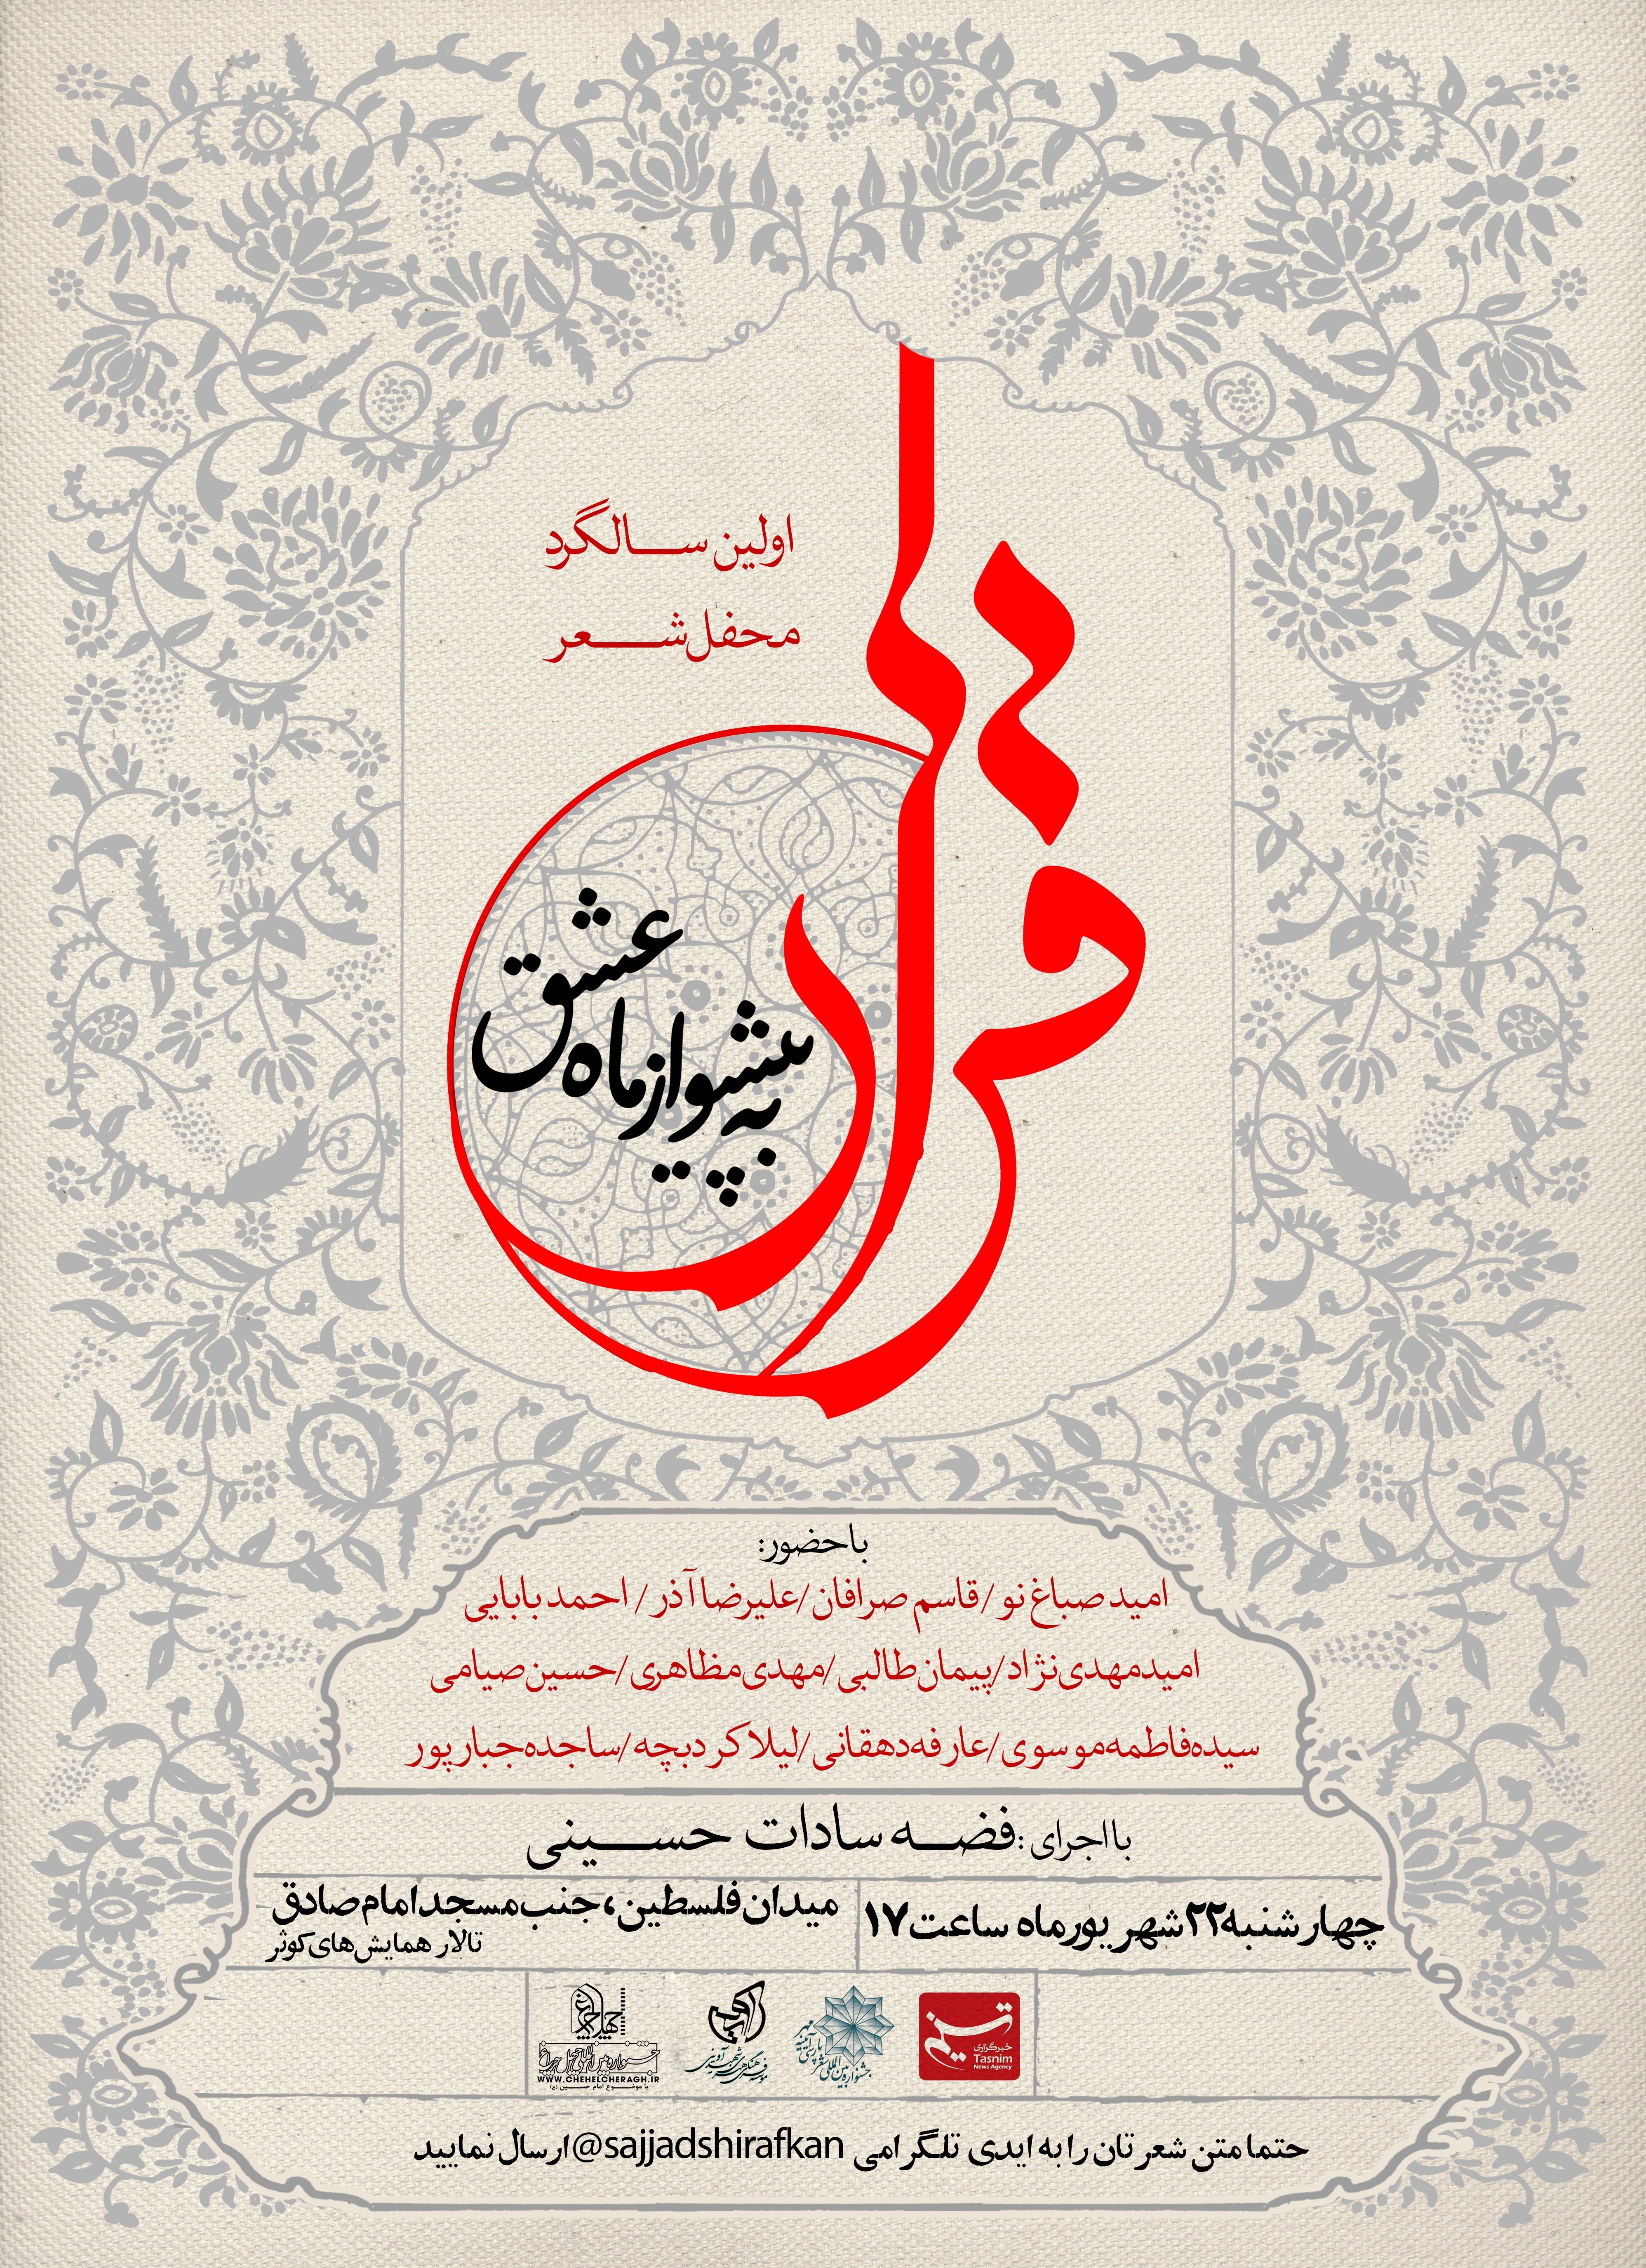 اولین سالگرد
محفل شعر
قرار
به پیشواز ماه عشق
با حضور:
امید صباغ نو/قاسم صرافان/علیرضا آذر/ احمد بابایی
امید مهدی نژاد/پیمان طالبی/مهدی مظاهری/حسین صیامی
سیده فاطمه موسوی/عارفه دهقانی/لیلا کردبچه/ساجده جبارپور
با اجرای :فضه سادات حسینی
چهارشنبه ۲۲ شهریورماه ساعت ۱۷
میدان فلسطین، جنب مسجد امام صادق
تالار همایش های کوثر
تسنیم
خبرگزاری
Tasnim
News Agency
چهل چراغ
WWW.CHEHELCHERAGH.IR
با موضوع امام حسین (ع)
حتما متن شعرتان را به ایدی تلگرامی @sajjadshirafkan ارسال نمایید